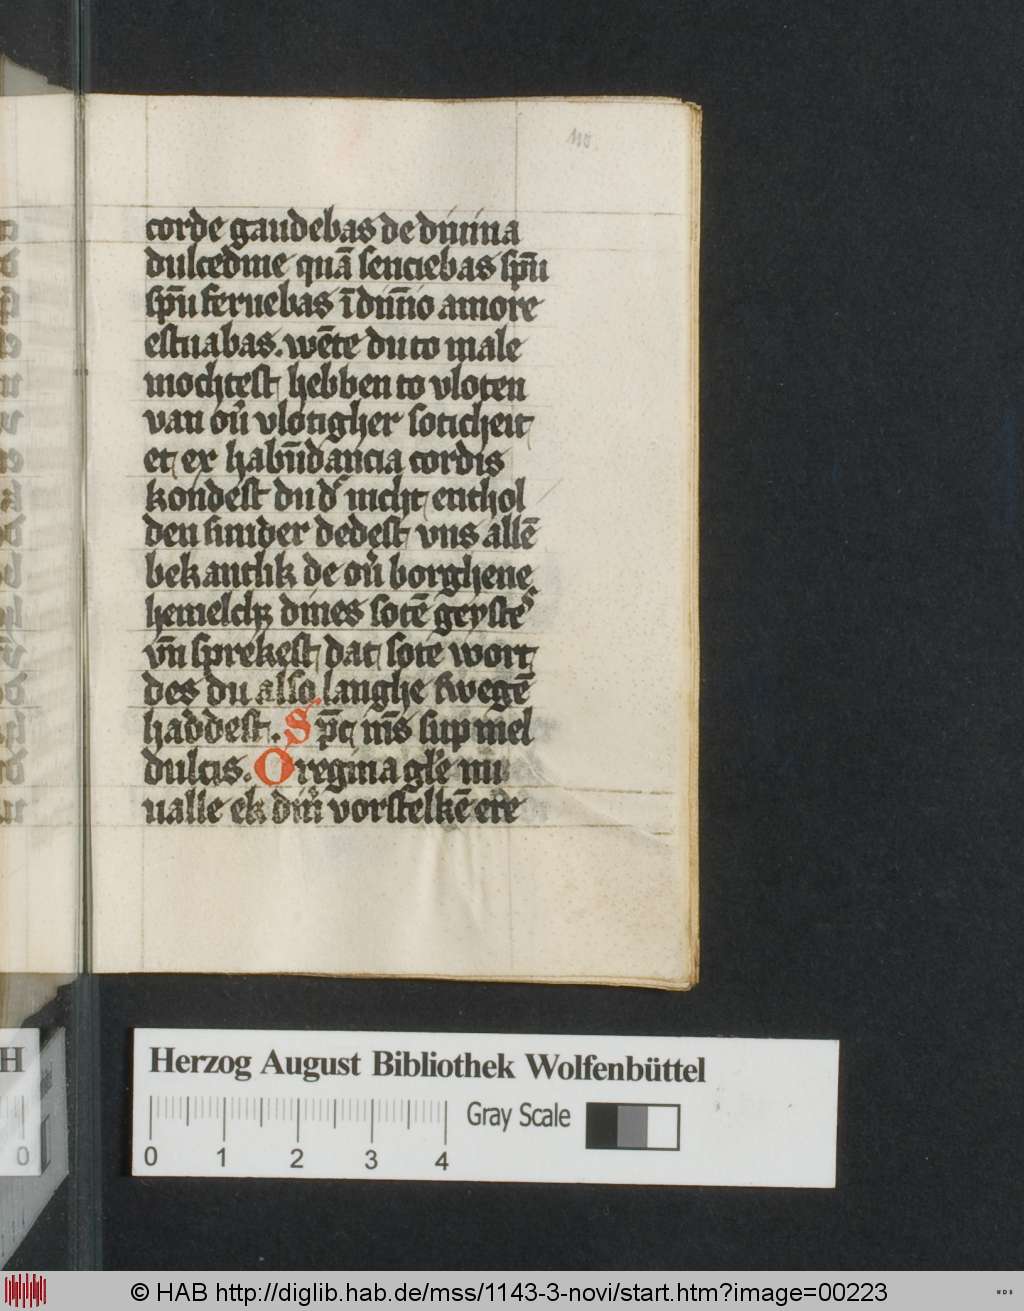 110
corde gaudebas de diuina
dulcedine quā senciebas spū
spū feruebas ī diuīo amore
estuabas. wēte du to male
mochtest hebben to vloten
van ou͛ vlotigher soticheit
et ex habūdancia cordis
kondest du d͛ nicht enthol
den sunder dedest vns allē
bekantlik de ou͛ borghene
hemelch dines sotē geystes
vn̄ sprekest dat sote wort
des du also langhe swegē
haddest. Sp̄c m̄s sup mel
dulcis. O regina gl͛e nu
ualle ek din͛ vorstelkē ere
Herzog August Bibliothek Wolfenbüttel
Gray Scale
0 1 2 3 4
H
0
© HAB http://diglib.hab.de/mss/1143-3-novi/start.htm?image=00223